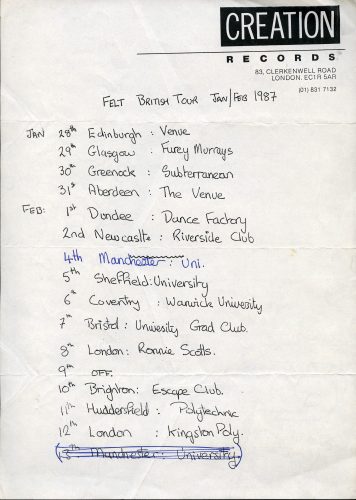 CREATION
RECORDS
83, CLERKENWELL ROAD
LONDON. EC1R 5AR
(01) 831 7132
FELT BRITISH TOUR JAN/FEB 1987
JAN 28th Edinburgh : Venue
29th Glasgow : Furey Murrays
30th Greenock : Subterranean
31st Aberdeen : The Venue
FEB: 1st Dundee : Dance Factory
2nd Newcastle : Riverside Club
4th Manchester : Uni.
5th Sheffield : University
6th Coventry : Warwick University
7th Bristol : University Grad Club.
8th London : Ronnie Scotts.
9th OFF.
10th Brighton : Escape Club.
11th Huddersfield : Polytechnic
12th London : Kingston Poly.
13th Manchester : University.